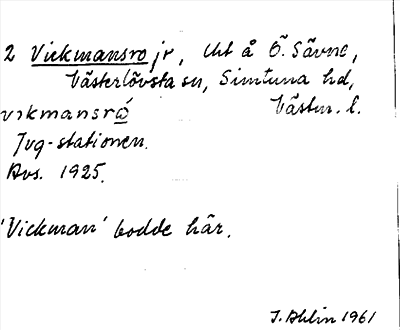 2 Vickmansro jr, lht å Ö. Sävne,
Västerlövsta sn, Simtuna hd,
vɩkmansró Västm. l.
Jvg-stationen.
Avs. 1925.
'Vickman' bodde här.
J. Ahlin 1961